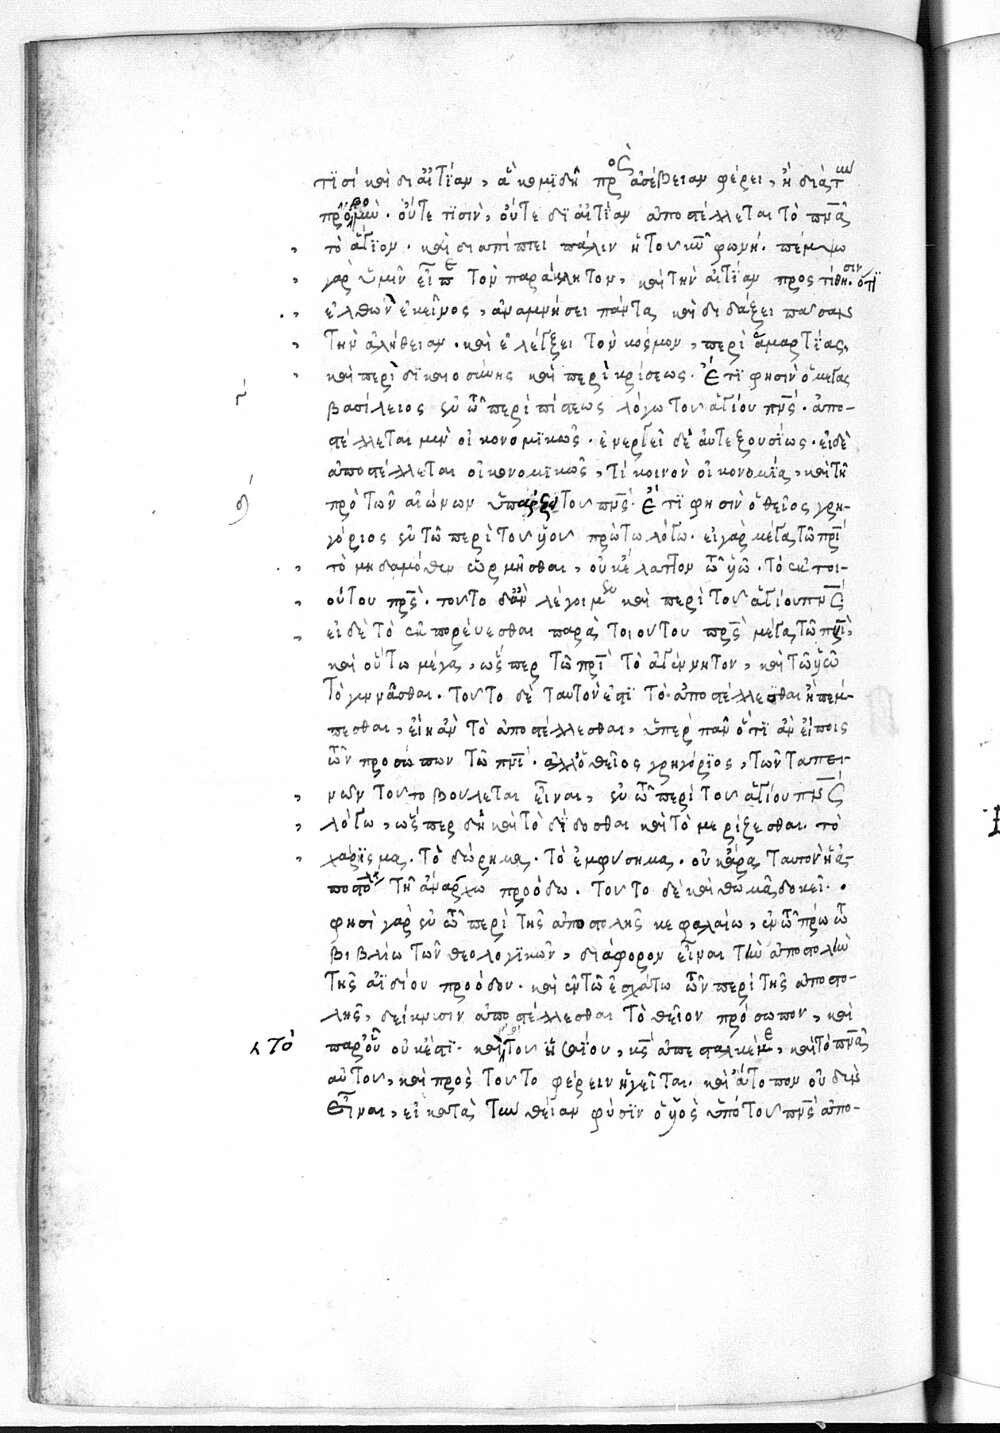 τισί καὶ δι αἰτίαν, ἃ κομιδῆ πρὸς ἀσέβειαν φέρει, ἢ διὰ τὴν
πρόοδον. οὔτε τισὶν, οὔτε δι αἰτίαν ἀποστέλλεται τὸ πνᾶ
τὸ ἅγιον. καὶ διαπίπτει πάλιν ἡ τοῦ κυ φωνή. πέμψω
γὰρ ὑμῖν εἶπε τὸν παράκλητον, καὶ τὴν αἰτίαν προστίθησιν. ὅτι
ἐλθὼν ἐκεῖνος, ἀναμνήσει πάντα καὶ διδάξει πᾶσαν
τὴν ἀλήθειαν. καὶ ἐλέγξει τὸν κόσμον, περὶ ἁμαρτίας,
καὶ περὶ δικαιοσύνης καὶ περὶ κρίσεως. Ἔτι φησὶν ὁ μέγας
η
βασίλειος ἐν τῶ περὶ πίστεως λόγω τοῦ ἁγίου πνς. ἀπο-
στέλλεται μὲν οἰκονομικῶς. ἐνεργεῖ δὲ αὐτεξουσίως. εἰ δὲ
ἀποστέλλεται οἰκονομικῶς, τί κοινὸν οἰκονομία, καὶ τῆ
θ
πρὸ τῶν αἰώνων ὑπάρξει τοῦ πνς. Ἔτι φησὶν ὁ θεῖος γρη-
γόριος ἐν τῶ περὶ τοῦ υἱοῦ πρώτω λόγω. εἰ γὰρ μέγα τῶ πρὶ
τὸ μηδαμόθεν ὡρμῆσθαι, οὐκ ἔλαττον τῶ υἱῶ. τὸ ἐκ τοι-
ούτου πρς. τοῦτο δἂν λέγοιμεν καὶ περὶ τοῦ ἁγίου πνς
εἰ δὲ τὸ ἐκπορεύεσθαι παρὰ τοιούτου πρς μέγα τῶ πνι,
καὶ οὕτω μέγα, ὥσπερ τῶ πρι τὸ ἀγέννητον, καὶ τῶ υἱῶ
τὸ γεννᾶσθαι. τοῦτο δὲ ταυτὸν ἐστι τὸ ἀποστέλλεσθαι ἢ πέμ-
πεσθαι, εἴη ἂν τὸ ἀποστέλλεσθαι, ὑπὲρ πᾶν ὅτι ἂν εἴποις
τῶν προσόντων τῶ πνι. ἀλλ ὁ θεῖος γρηγόριος, τῶν ταπει-
νῶν τοῦτο βούλεται εἶναι, ἐν τῶ περὶ τοῦ ἁγίου πνς
λόγω, ὥσπερ δὴ καὶ τὸ δίδοσθαι καὶ τὸ μερίζεσθαι. τὸ
χάρισμα. τὸ δώρημα. τὸ ἐμφύσημα. οὐκ ἄρα ταυτὸν ἡ ἀ-
ποστολὴ τῆ ἀνάρχω προόδω. τοῦτο δὲ καὶ θωμᾶ δοκεῖ.
φησὶ γὰρ ἐν τῶ περὶ τῆς ἀποστολῆς κεφαλαίω, ἐν τῶ πρώτω
βιβλίω τῶν θεολογικῶν, διάφορον εἶναι τὴν ἀποστολὴν
τῆς ἀϊδίου προόδου. καὶ ἐν τῶ ἐσχάτω τῶν περὶ τῆς ἀποστο-
λῆς, δείκνυσιν ἀποστέλλεσθαι τὸ θεῖον πρόσωπον, καὶ
τὸ
παρ οὗ οὐκ ἔστι. καὶ τὸν ἡσαΐου, κς ἀπέσταλκέ με, καὶ τὸ πνα
αὐτοῦ, καὶ πρὸς τοῦτο φέρειν ἡγεῖται. καὶ ἄτοπον οὐδὲν
εἶναι, εἰ κατὰ τὴν θείαν φύσιν ὁ υἱὸς ὑπὸ τοῦ πνς ἀπο-